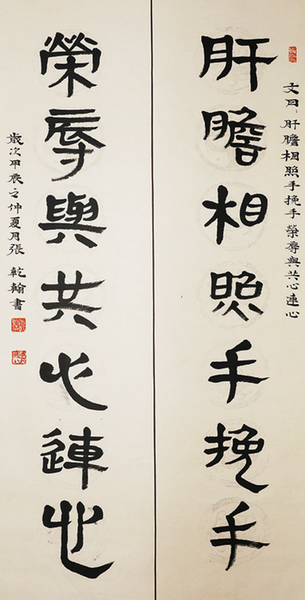 文曰：肝膽相照手挽手榮辱與共心連心
肝膽相照手挽手
榮辱與共心連心
歲次甲辰之仲夏月張乾翰書